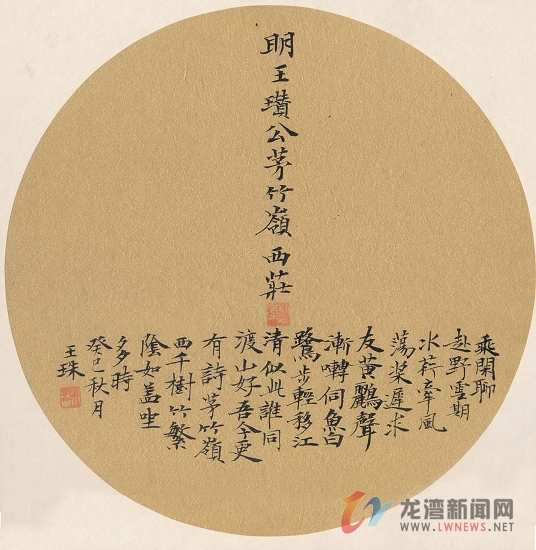 明王瓚公茅竹嶺西莊
乘閑聊
赴野雲期
水荇牽風
蕩槳遲求
友黃鸝聲
漸囀伺魚白
鷺步輕移江
清似此誰同
渡山好吾今更
有詩茅竹嶺
西千樹竹繁
蔭如盖坐
多時
癸巳秋月
王珠
龙湾新闻网
WWW.LWNEWS.NET